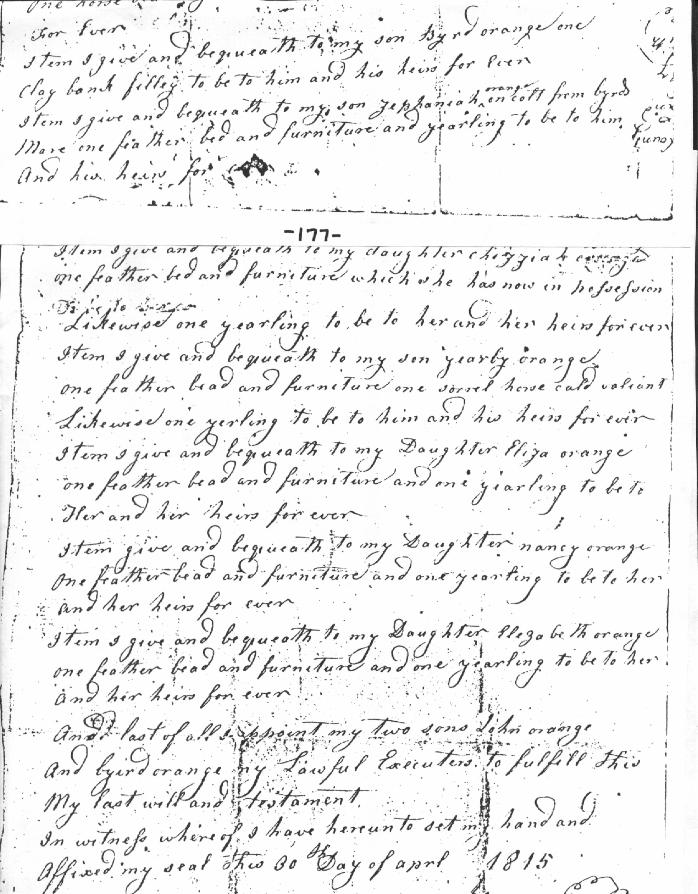 one horse
For Ever
Item I give and bequeath to my son Byrd orange one
Clay bank filley to be to him and his heirs for Ever
Item I give and bequeath to my son Zephaniah orange on colt from byrds
More one feather bed and furniture and yearling to be to him
And his heirs for
-177-
Item I give and bequeath to my daughter chizziah orange
one feather bed and furniture which she has now in possession
Likewise one yearling to be to her and her heirs for ever
Item I give and bequeath to my son yearby orange
one feather bead and furniture one sorrel horse cald valiant
Likewise one yerling to be to him and his heirs for ever
Item I give and bequeath to my Daughter Eliza orange
one feather bead and furniture and one yiarling to be to
Her and her heirs for ever
Item give and bequeath to my Daughter nancy orange
one feather bead and furniture and one yearling to be to her
and her heirs for ever
Item I give and bequeath to my Daughter Elezabeth orange
one feather bead and furniture and one yearling to be to her
And her heirs for ever
And last of all I appoint my two sons John orange
And byird orange my Lawful Executers to fulfill this
My last will and testament
In witness whereof I have hereunto set my hand and
Affixed my seal this 30th Day of aprl 1815